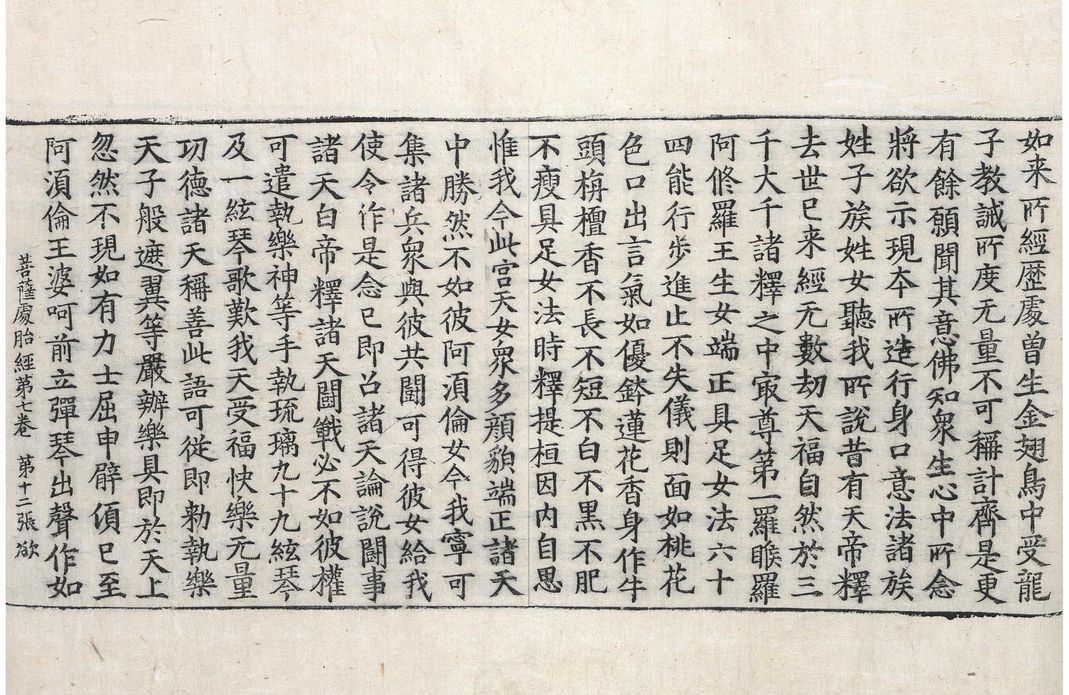 如来所經歷處曽生金翅鳥中受龍
子教誡所度无量不可稱計齊是更
有餘願聞其意佛知衆生心中所念
將欲示現本所造行身口意法諸族
姓子族姓女聽我所說昔有天帝釋
去世已来經无數劫天福自然於三
千大千諸釋之中㝡尊第一羅睺羅
阿修羅王生女端正具足女法六十
四能行步進止不失儀則面如桃花
色口出言氣如優鉢蓮花香身作牛
頭栴檀香不長不短不白不黑不肥
不瘦具足女法時釋提桓因内自思
惟我今此宫天女衆多顔貌端正諸天
中勝然不如彼阿湏倫女今我寧可
集諸兵衆與彼共闘可得彼女給我
使令作是念已即召諸天論說闘事
諸天白帝釋諸天闘戰必不如彼權
可遣執樂神等手執琉璃九十九絃琴
及一絃琴歌歎我天受福快樂无量
功德諸天稱善此語可從即勑執樂
天子般遮翼等嚴辦樂具即於天上
忽然不現如有力士屈申臂頃已至
阿湏倫王婆呵前立彈琴出聲作如
菩薩處胎經第七卷 第十二張 欲